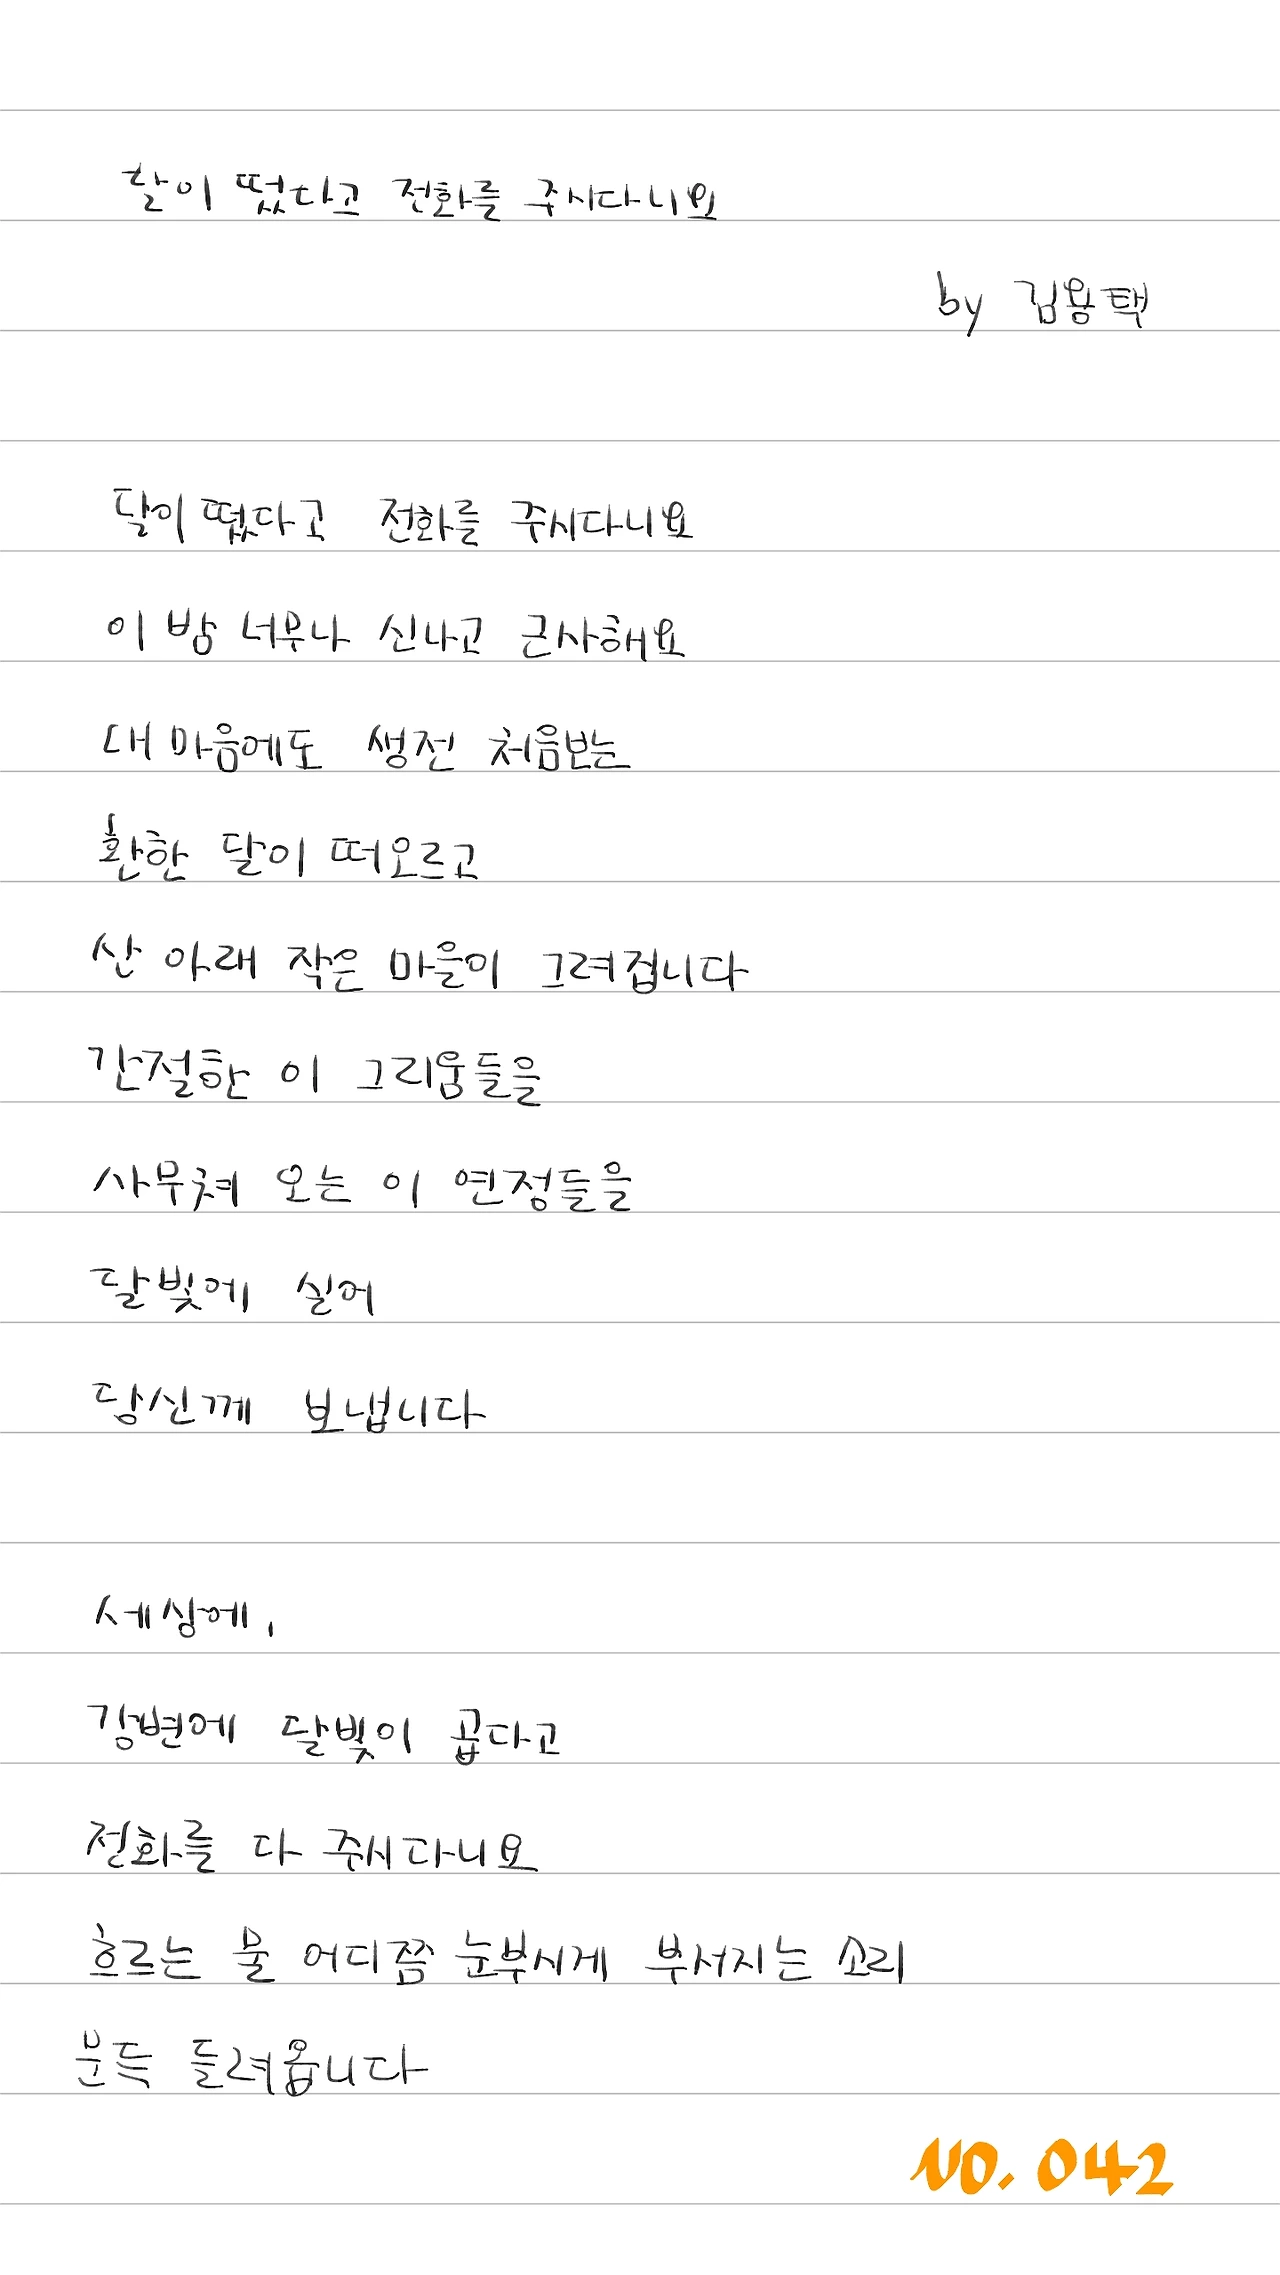 달이 떴다고 전화를 주시다니요
by 김용택
달이 떴다고 전화를 주시다니요
이 밤 너무나 신나고 근사해요
내 마음에도 생전 처음보는
환한 달이 떠오르고
산 아래 작은 마을이 그려집니다
간절한 이 그리움들을
사무쳐 오는 이 연정들을
달빛에 실어
당신께 보냅니다
세상에,
강변에 달빛이 곱다고
전화를 다 주시다니요
흐르는 물 어디쯤 눈부시게 부서지는 소리
문득 들려옵니다
NO. 042